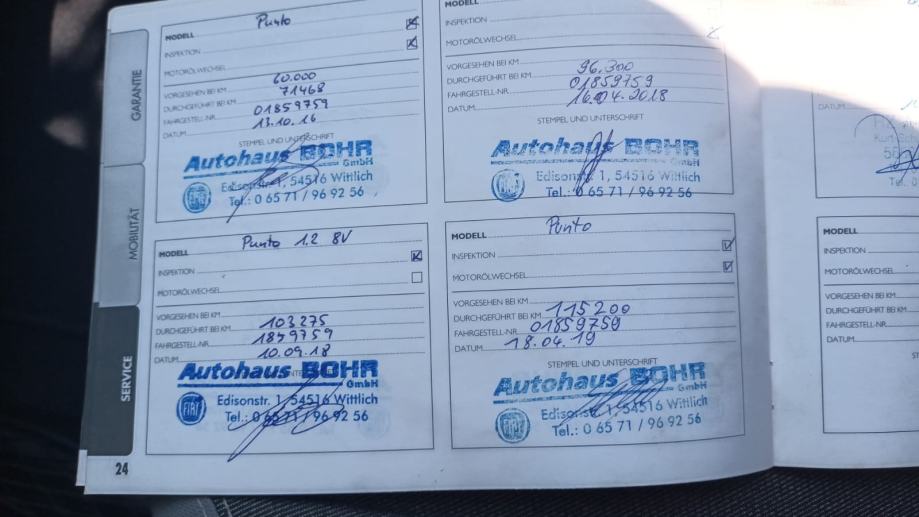 GARANTIE
MOBILITÄT
SERVICE
24
MODELL Punto
INSPEKTION
MOTORÖLWECHSEL
VORGESEHEN BEI KM 60.000
DURCHGEFÜHRT BEI KM 71468
FAHRGESTELL-NR. 01859759
DATUM 13.10.16
STEMPEL UND UNTERSCHRIFT
Autohaus BOHR
GmbH
FIAT
Edisonstr. 1, 54516 Wittlich
Tel.: 0 65 71 / 96 92 56
INSPEKTION
MOTORÖLWECHSEL
VORGESEHEN BEI KM
DURCHGEFÜHRT BEI KM 96.300
FAHRGESTELL-NR. 01859759
DATUM 16.04.2018
STEMPEL UND UNTERSCHRIFT
Autohaus BOHR
GmbH
FIAT
Edisonstr. 1, 54516 Wittlich
Tel.: 0 65 71 / 96 92 56
MODELL Punto 1.2 8V
INSPEKTION
MOTORÖLWECHSEL
VORGESEHEN BEI KM
DURCHGEFÜHRT BEI KM 103275
FAHRGESTELL-NR. 1859759
DATUM 10.09.18
Autohaus BOHR
GmbH
FIAT
Edisonstr. 1, 54516 Wittlich
Tel.: 0 65 71 / 96 92 56
MODELL Punto
INSPEKTION
MOTORÖLWECHSEL
VORGESEHEN BEI KM
DURCHGEFÜHRT BEI KM 115200
FAHRGESTELL-NR. 01859759
DATUM 18.04.19
STEMPEL UND UNTERSCHRIFT
Autohaus BOHR
GmbH
FIAT
Edisonstr. 1, 54516 Wittlich
Tel.: 0 65 71 / 96 92 56
DATUM
MODELL
INSPEKTION
MOTORÖLWECHSEL
VORGESEHEN BEI KM
DURCHGEFÜHRT BEI KM
FAHRGESTELL-NR.
DATUM